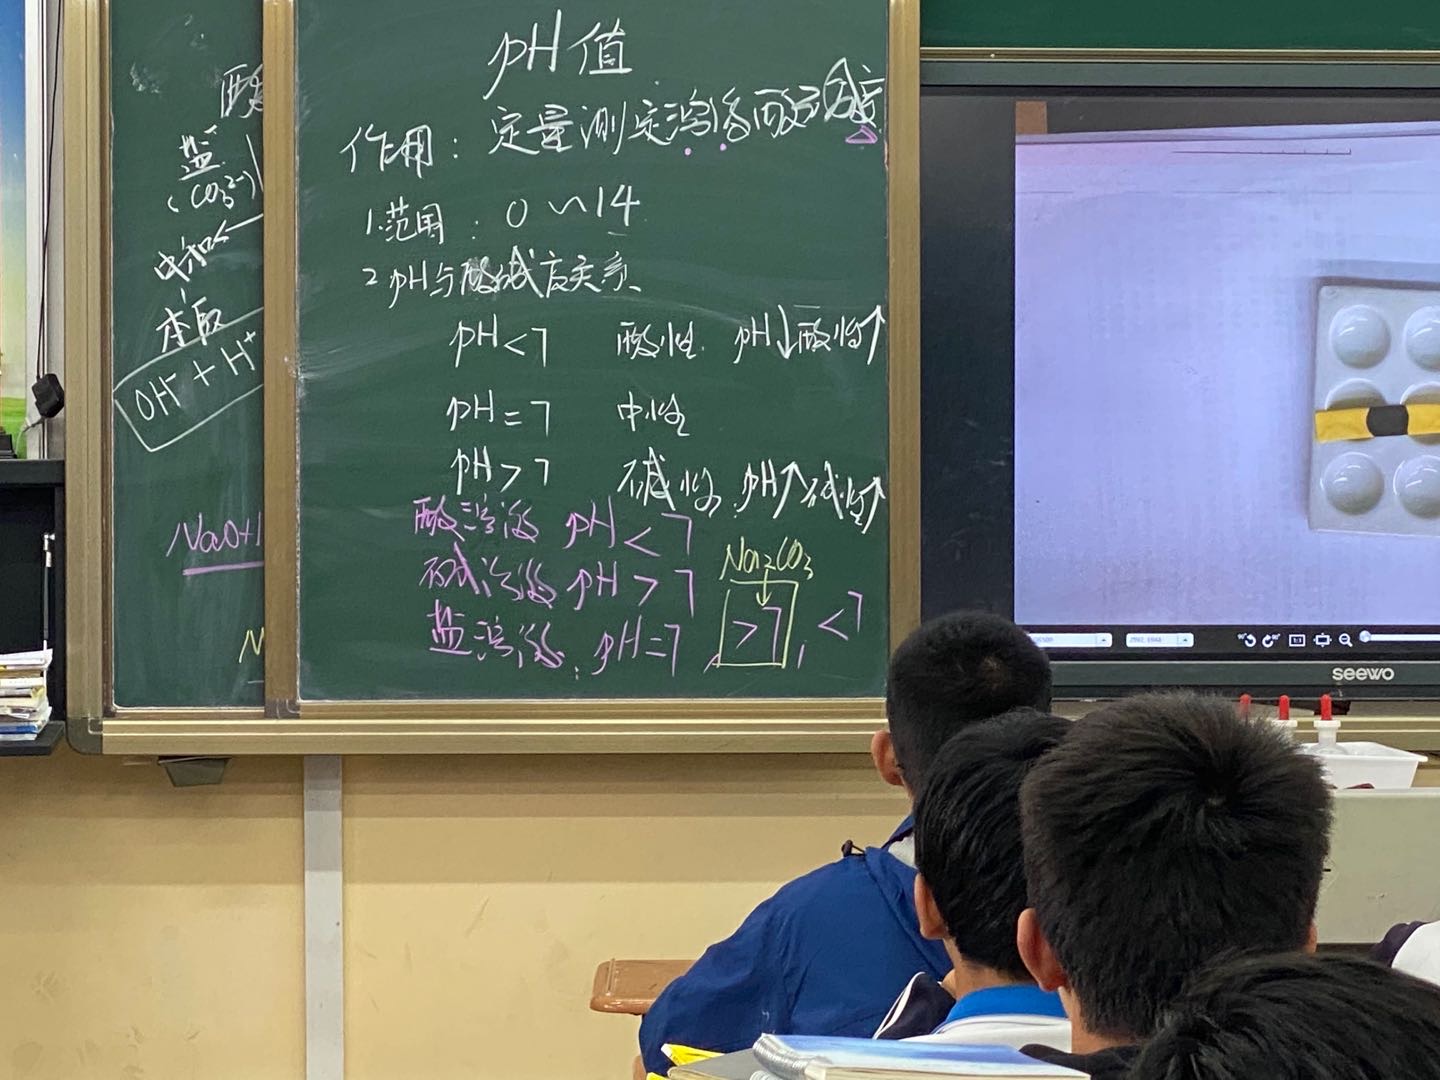 酸
盐
(CO₃²⁻)
中和
本质
OH⁻ + H⁺
pH值
作用：定量测定溶液酸碱度
1.范围：0~14
2 pH与酸碱度关系
pH<7 酸性 pH↓酸性↑
pH=7 中性
pH>7 碱性 pH↑碱性↑
酸溶液 pH<7
碱溶液 pH>7
Na₂CO₃
盐溶液：pH=7，>7，<7
seewo